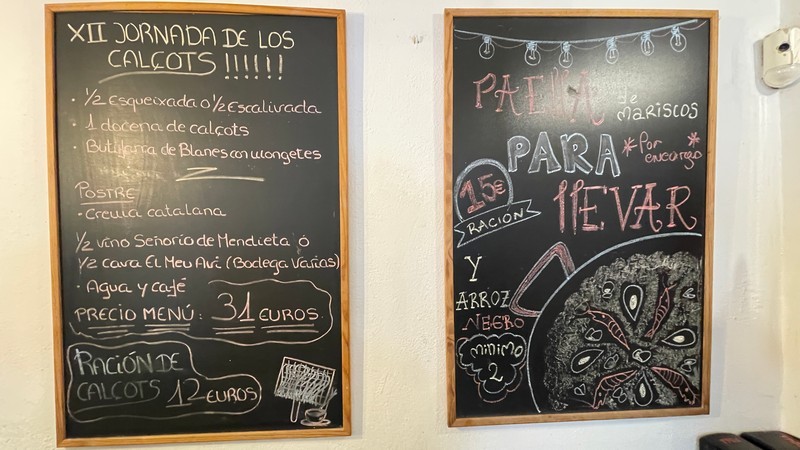 XII JORNADA DE LOS
CALÇOTS !!!!!!
· 1/2 Esqueixada o 1/2 Escalivada
1 docena de calçots
· Butifarra de Blanes con mongetes
POSTRE
· Crema catalana
1/2 vino Señorio de Mendieta ó
1/2 cava El Meu Avi (Bodega Varias)
· Agua y café
PRECIO MENÚ: 31 EUROS
RACIÓN DE
CALÇOTS 12 EUROS
PAELLA de
MARISCOS
PARA *Por
encargo*
15€
RACIÓN
LLEVAR
Y
ARROZ
NEGRO
MINIMO
2